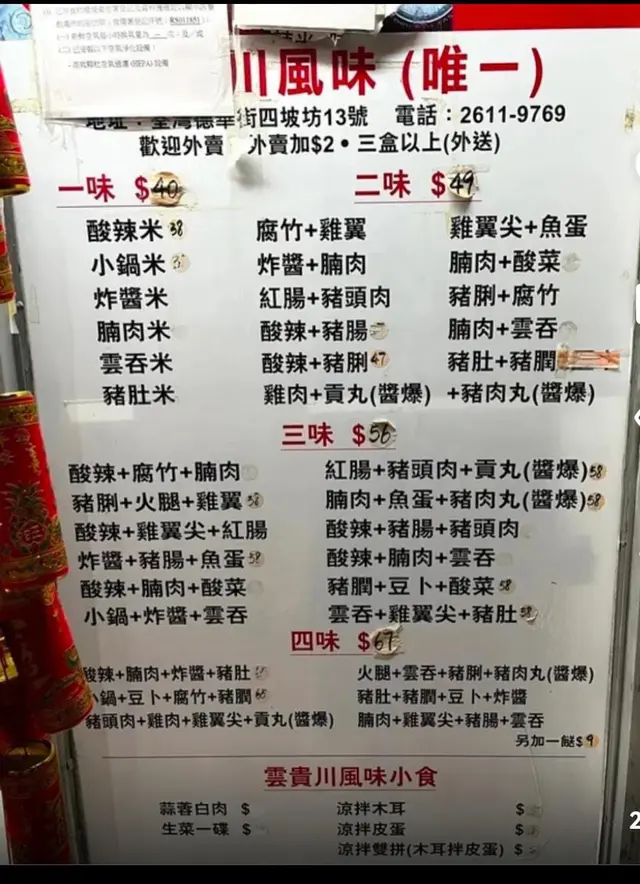 川風味(唯一)
地址：荃灣德華街四坡坊13號 電話：2611-9769
歡迎外賣 外賣加$2•三盒以上(外送)
一味 $40
二味 $49
酸辣米38 腐竹+雞翼 雞翼尖+魚蛋
小鍋米 炸醬+腩肉 腩肉+酸菜
炸醬米 紅腸+豬頭肉 豬脷+腐竹
腩肉米 酸辣+豬腸 腩肉+雲吞
雲吞米 酸辣+豬脷47 豬肚+豬膶
豬肚米 雞肉+貢丸(醬爆) +豬肉丸(醬爆)
三味 $56
酸辣+腐竹+腩肉 紅腸+豬頭肉+貢丸(醬爆)58
豬脷+火腿+雞翼58 腩肉+魚蛋+豬肉丸(醬爆)58
酸辣+雞翼尖+紅腸 酸辣+豬腸+豬頭肉
炸醬+豬腸+魚蛋58 酸辣+腩肉+雲吞
酸辣+腩肉+酸菜 豬膶+豆卜+酸菜58
小鍋+炸醬+雲吞 雲吞+雞翼尖+豬肚58
四味 $67
酸辣+腩肉+炸醬+豬肚 火腿+雲吞+豬脷+豬肉丸(醬爆)
鍋+豆卜+腐竹+豬膶65 豬肚+豬膶+豆卜+炸醬
豬頭肉+雞肉+雞翼尖+貢丸(醬爆) 腩肉+雞翼尖+豬腸+雲吞
另加一餸$9
雲貴川風味小食
蒜蓉白肉 $ 涼拌木耳 $
生菜一碟 $ 涼拌皮蛋 $
涼拌雙拼(木耳拌皮蛋) $